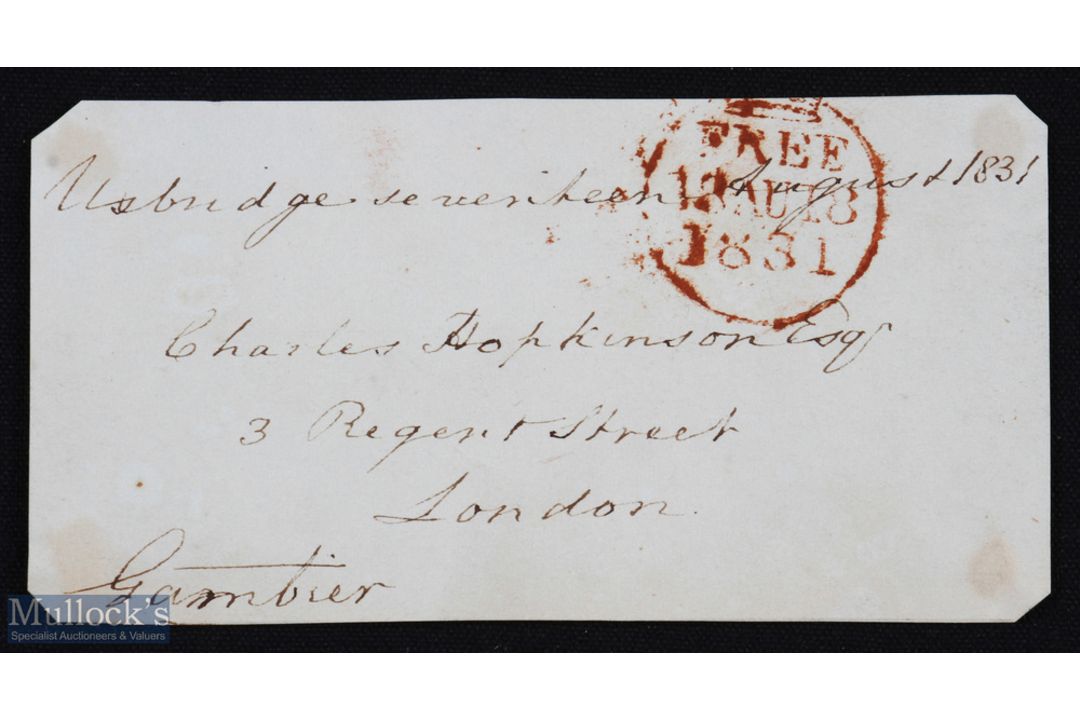 Uxbridge seventeen August 1831
FREE
18 AU 18
1831
Charles Hopkinson Esqr
3 Regent Street
London
Gambier
Mullock's
Specialist Auctioneers & Valuers